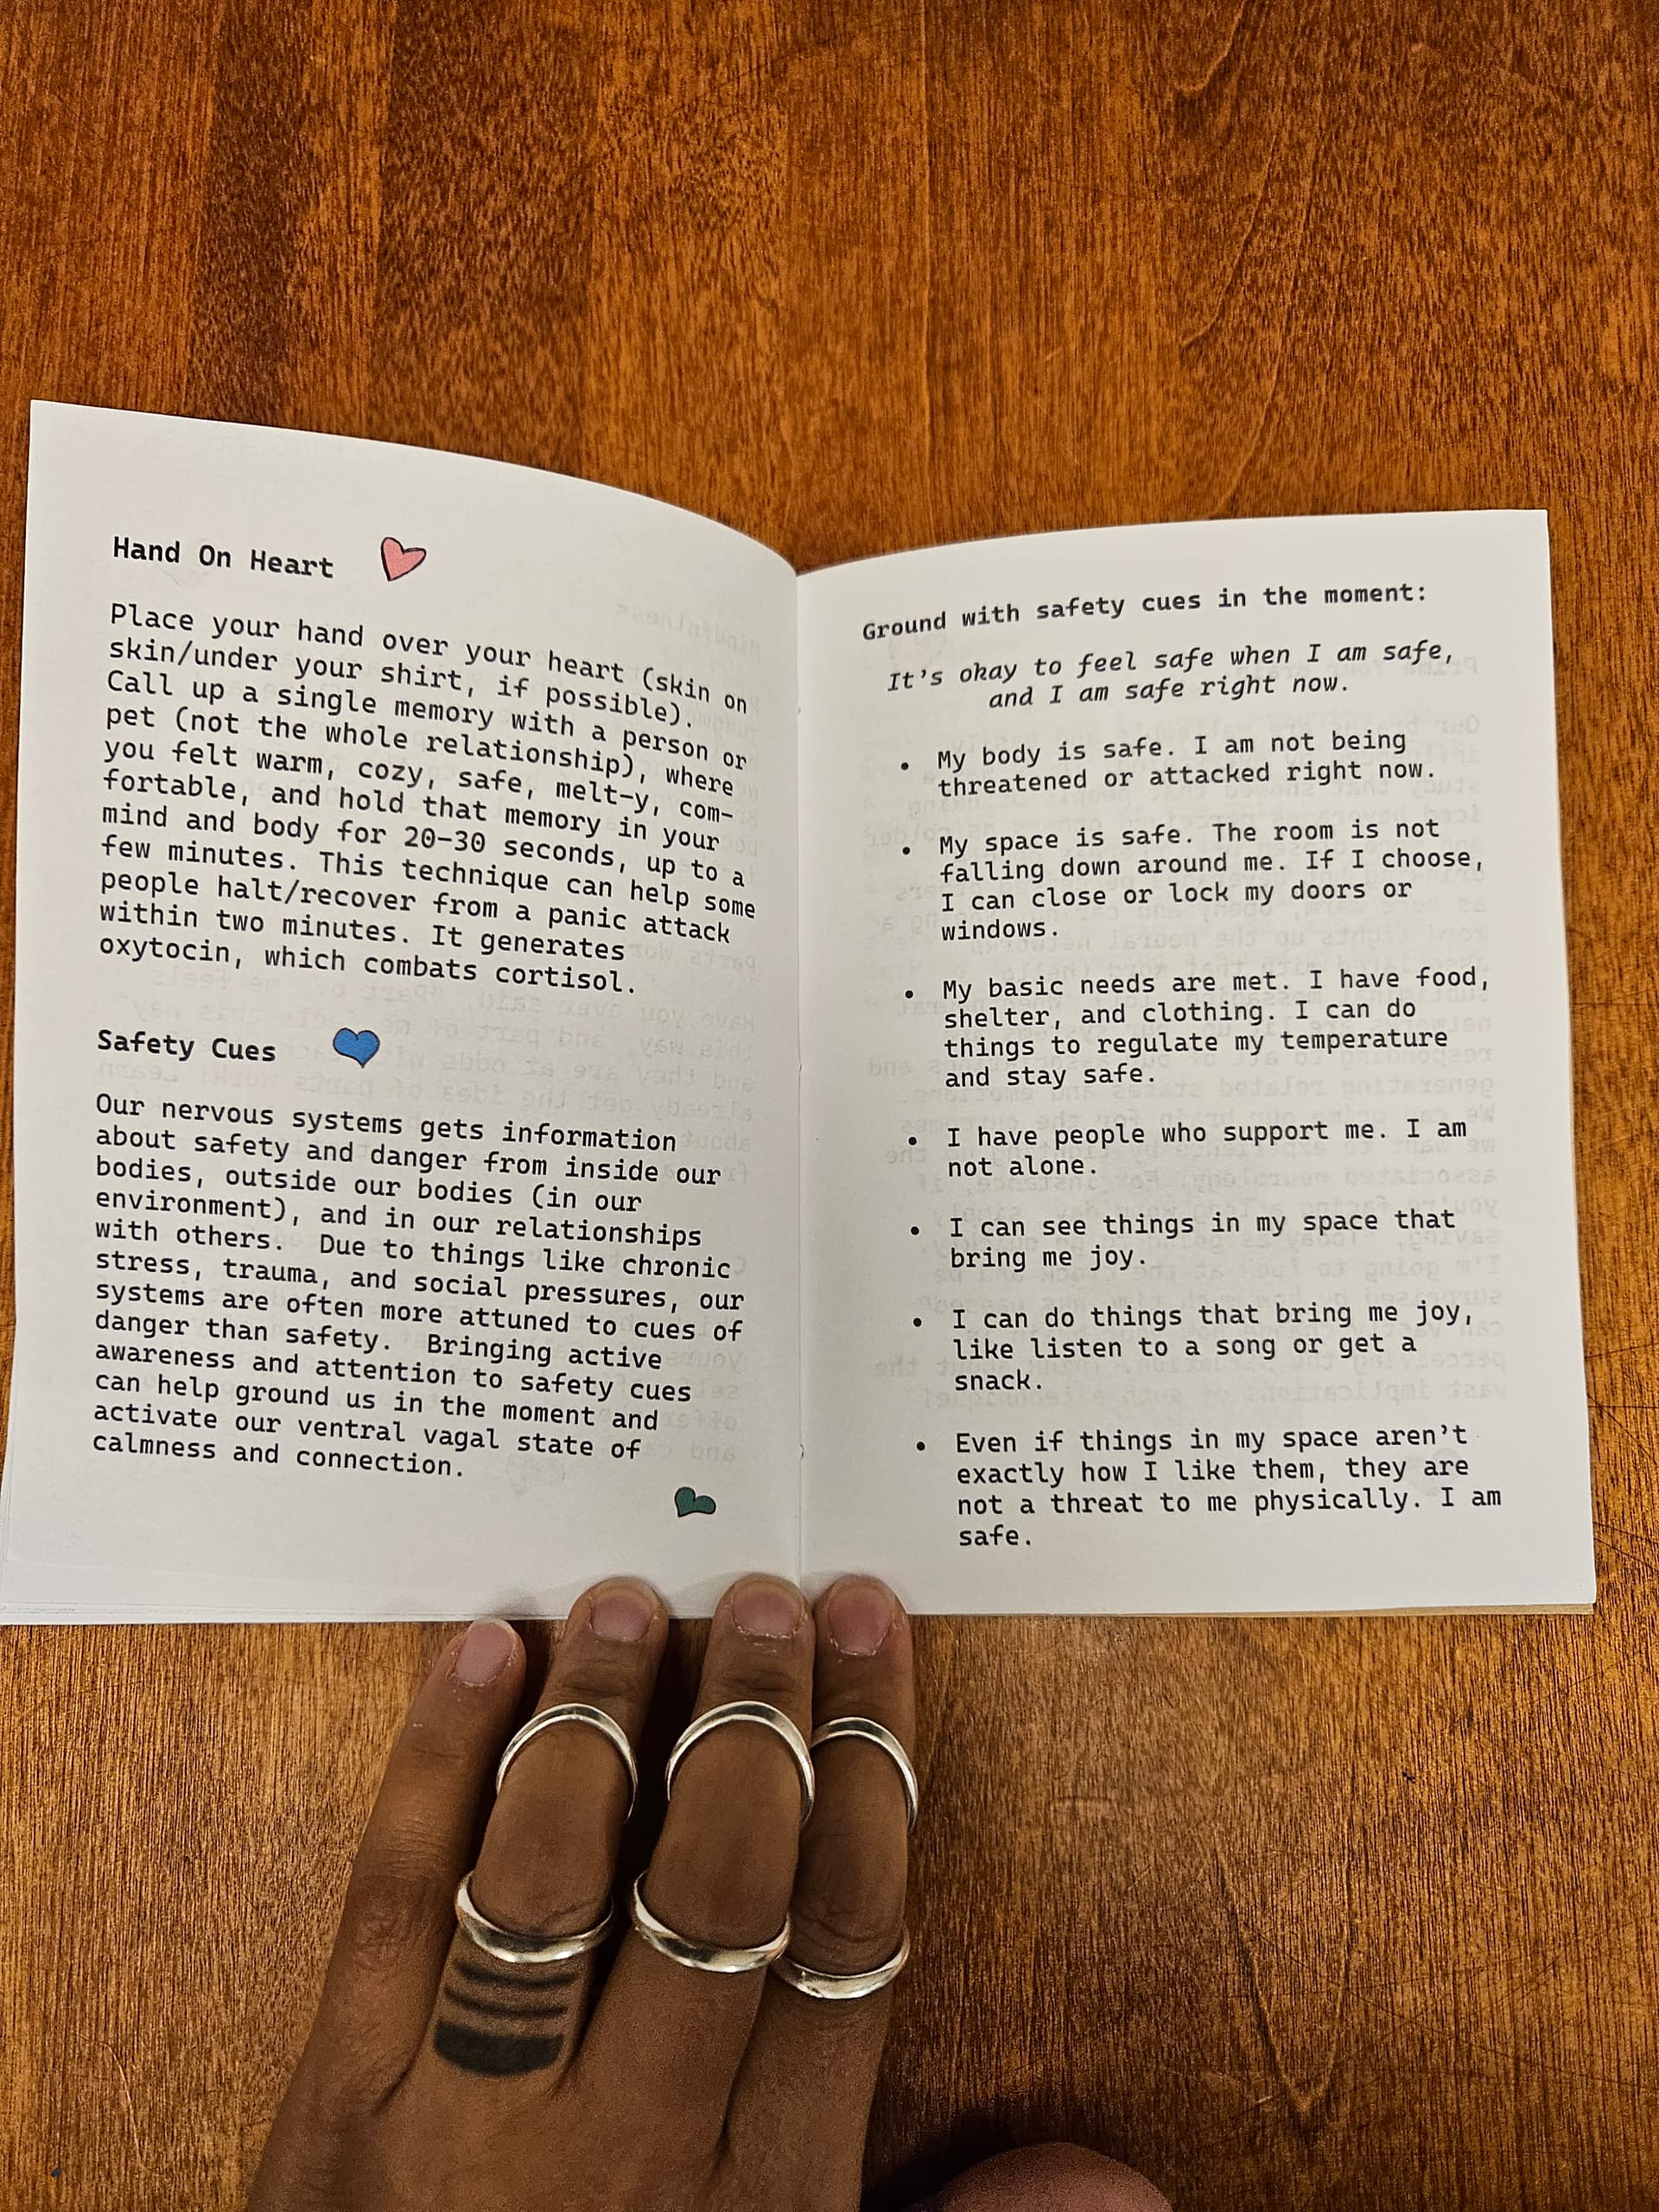 Hand On Heart
Place your hand over your heart (skin on
skin/under your shirt, if possible).
Call up a single memory with a person or
pet (not the whole relationship), where
you felt warm, cozy, safe, melt-y, com-
fortable, and hold that memory in your
mind and body for 20-30 seconds, up to a
few minutes. This technique can help some
people halt/recover from a panic attack
within two minutes. It generates
oxytocin, which combats cortisol.
Safety Cues
Our nervous systems gets information
about safety and danger from inside our
bodies, outside our bodies (in our
environment), and in our relationships
with others. Due to things like chronic
stress, trauma, and social pressures, our
systems are often more attuned to cues of
danger than safety. Bringing active
awareness and attention to safety cues
can help ground us in the moment and
activate our ventral vagal state of
calmness and connection.
Ground with safety cues in the moment:
It's okay to feel safe when I am safe,
and I am safe right now.
• My body is safe. I am not being
threatened or attacked right now.
• My space is safe. The room is not
falling down around me. If I choose,
I can close or lock my doors or
windows.
• My basic needs are met. I have food,
shelter, and clothing. I can do
things to regulate my temperature
and stay safe.
• I have people who support me. I am
not alone.
• I can see things in my space that
bring me joy.
• I can do things that bring me joy,
like listen to a song or get a
snack.
• Even if things in my space aren't
exactly how I like them, they are
not a threat to me physically. I am
safe.